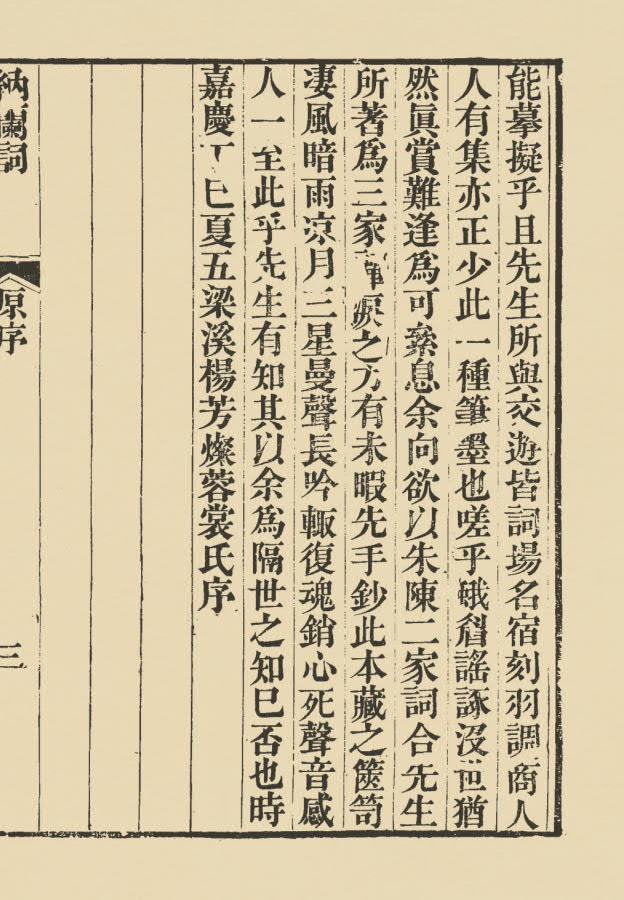 能摹擬乎且先生所與交遊皆詞場名宿刻羽調商人
人有集亦正少此一種筆墨也嗟乎蛾睂謠諑沒世猶
然眞賞難逢爲可息余向欲以朱陳二家詞合先生
所著爲三家之方有未暇先手鈔此本藏之篋笥
凄風暗雨凉月三星曼聲長吟輙復魂銷心死聲音感
人一至此乎先生有知其以余爲隔世之知巳否也時
嘉慶丁巳夏五梁溪楊芳燦蓉裳氏序
納蘭詞
原序
三